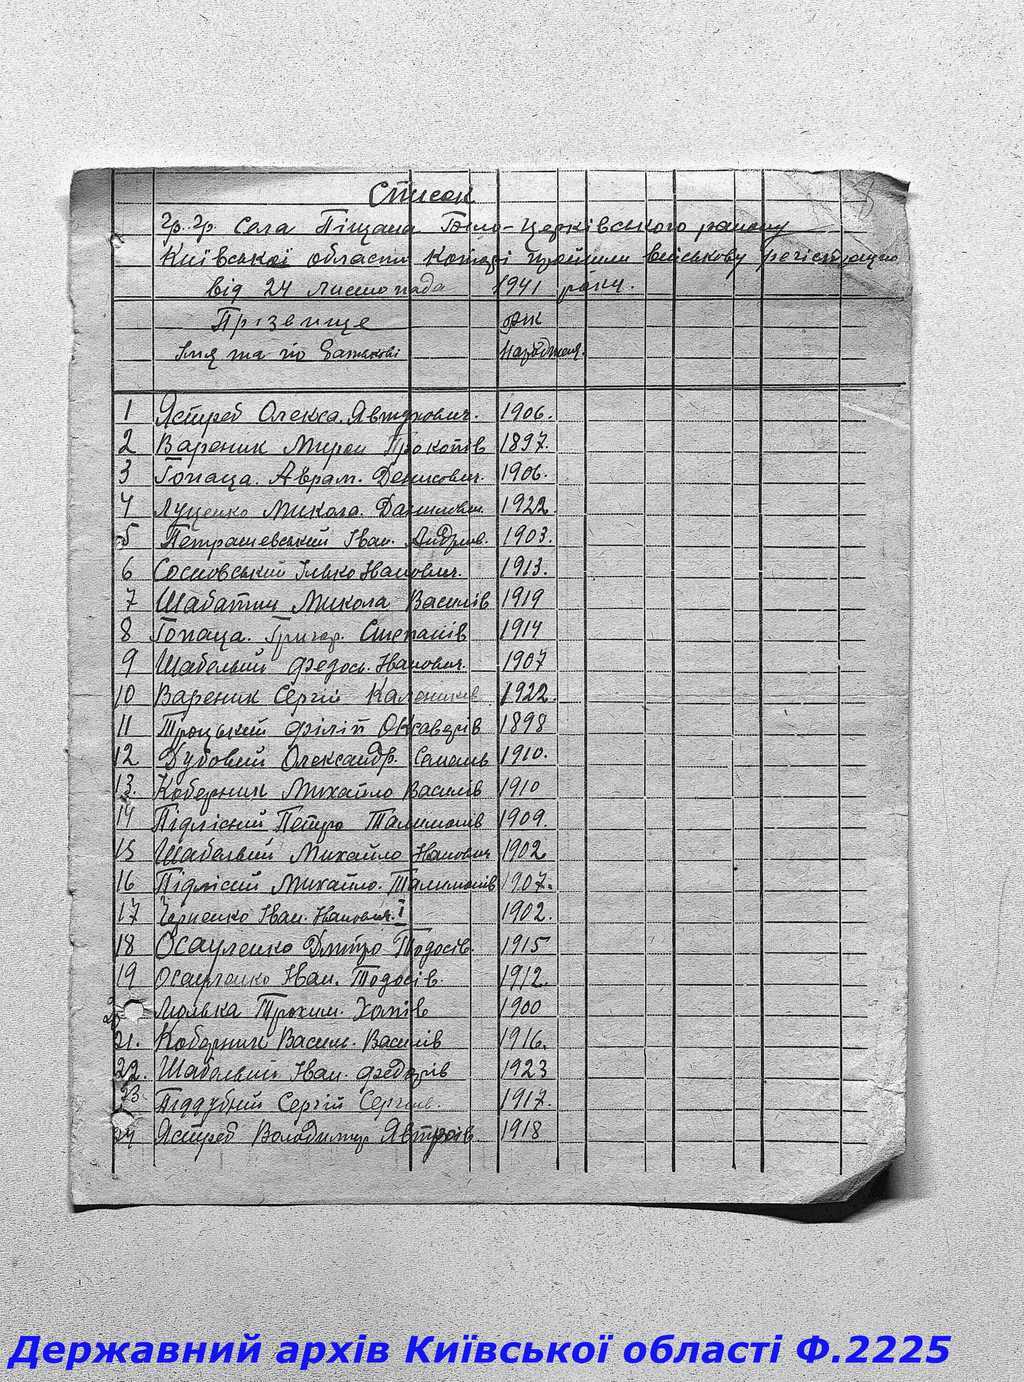 Список
гр.гр. Села Піщана Біло-Церківського району
Київської области котрі пройшли військову регістрацію
від 24 листопада 1941 року.
Прізвище рік
Імя та по батькові народження.
1 Ястреб Олекса. Явтухович. 1906.
2 Вареник Мирон Прокопів 1897.
3 Гопаца. Аврам. Денисович. 1906.
4 Луценко Микола. Данилович. 1922
5 Петрашевський Іван. Андріів. 1903.
6 Сосновський Ілько Іванович. 1913.
7 Шабатин Микола Василів 1919
8 Гопаца. Григор. Степанів 1914
9 Шабельий Федось. Іванович. 1907
10 Вареник Сергій 1922.
11 Троцький Філіп 1898
12 Дубовий Олександр. Семенів 1910.
13. Коберник Михайло Василів 1910
14 Підлісний Петро Талимонів 1909.
15 Шабельий Михайло Іванович 1902
16 Підлісий Михайло. Талимонів 1907.
17 Черненко Іван. Іванович. І 1902.
18 Осауленко Дмитро Тодосів. 1915
19. Осауленко Іван. Тодосів. 1912.
Люлька Трохим. 1900
21. Коберник Василь. Василів 1916.
22. Шабельий Іван. Федорів 1923
23. Піддубній Сергій Сергіів. 1917.
24 Ястреб Володимир 1918
Державний архів Київської області Ф.2225